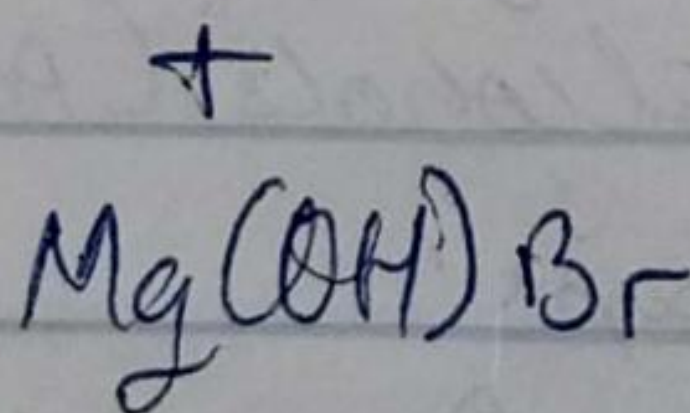 +
Mg(OH)Br